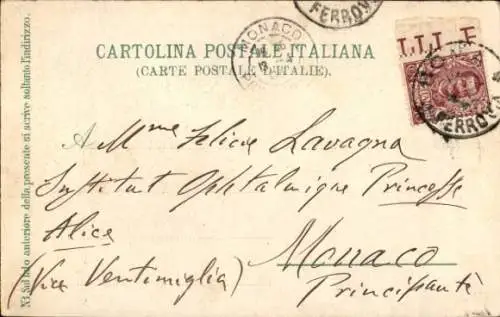 MONACO
FERROV
LLL E
CARTOLINA POSTALE ITALIANA
(CARTE POSTALE D'ITALIE).
FERROVIA
A Mme Felicie Lavagna
Institut Ophtalmique Princesse
Alice
Monaco
(Via Ventimiglia) Principauté
N3. Sul lato anteriore della presente si scrive soltanto l'indirizzo.